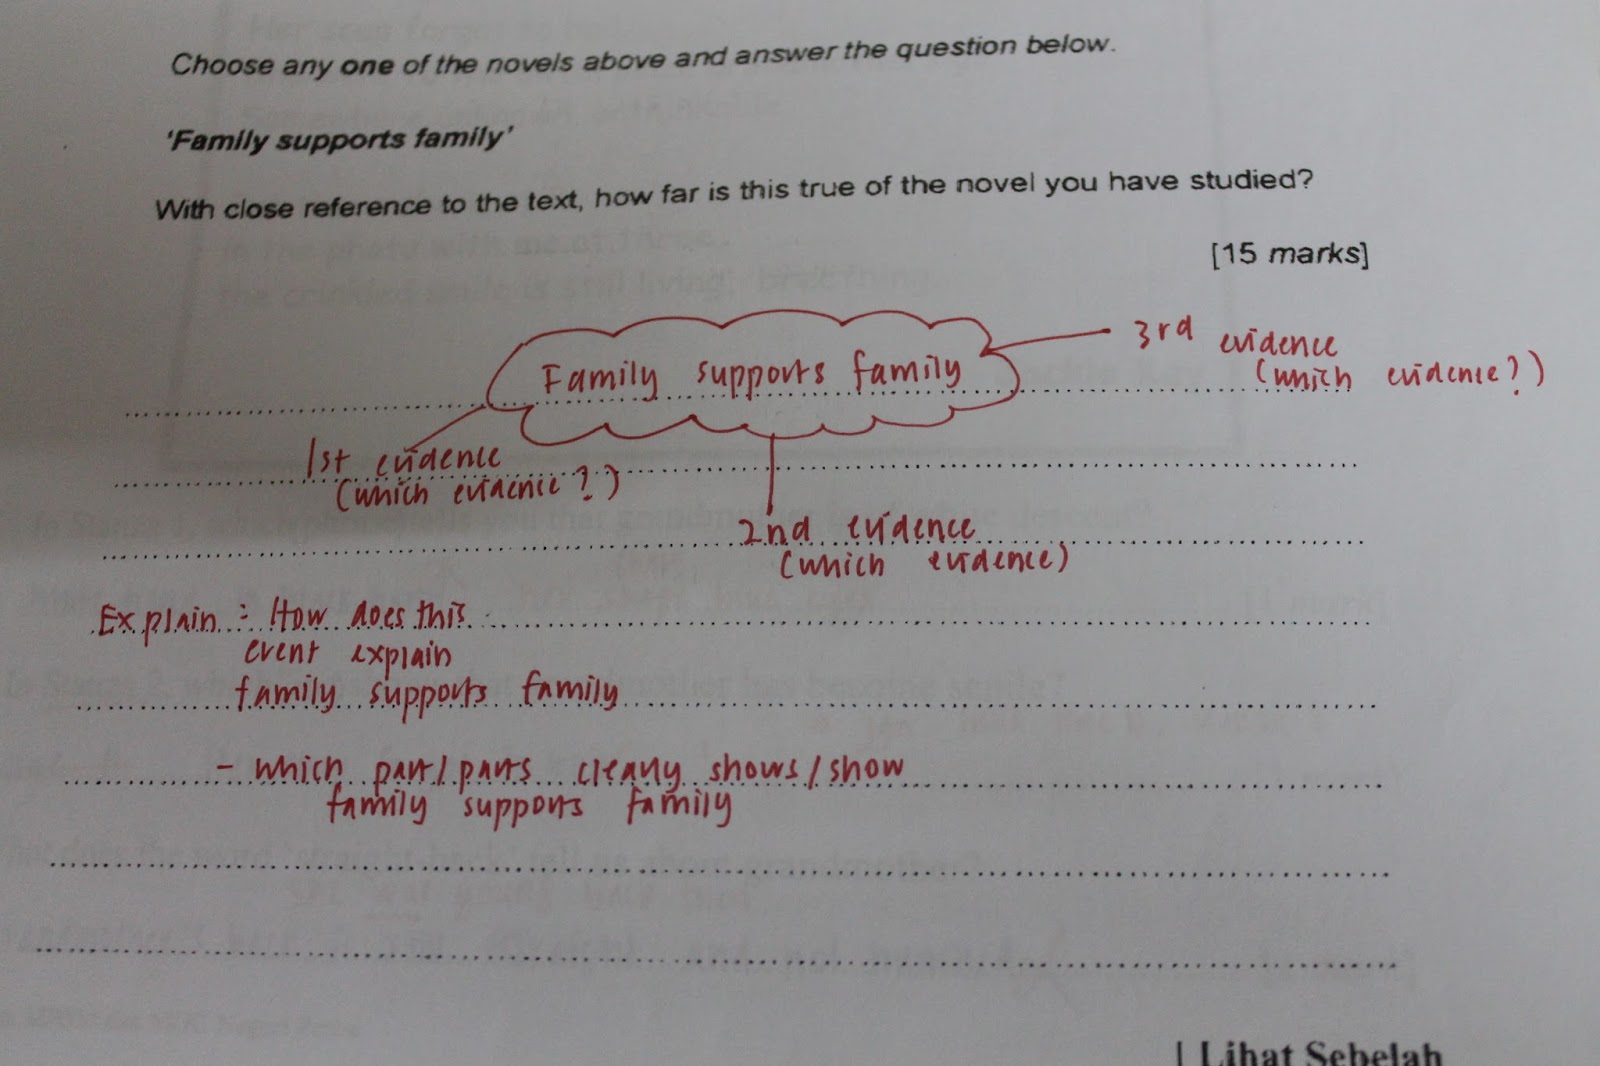 Choose any one of the novels above and answer the question below.
'Family supports family'
With close reference to the text, how far is this true of the novel you have studied?
[15 marks]
Family supports family
3rd evidence
(which evidence?)
1st evidence
(which evidence?)
2nd evidence
(which evidence)
Explain : How does this
event explain
family supports family
- which part/parts clearly shows/show
family supports family
| Lihat Sebelah